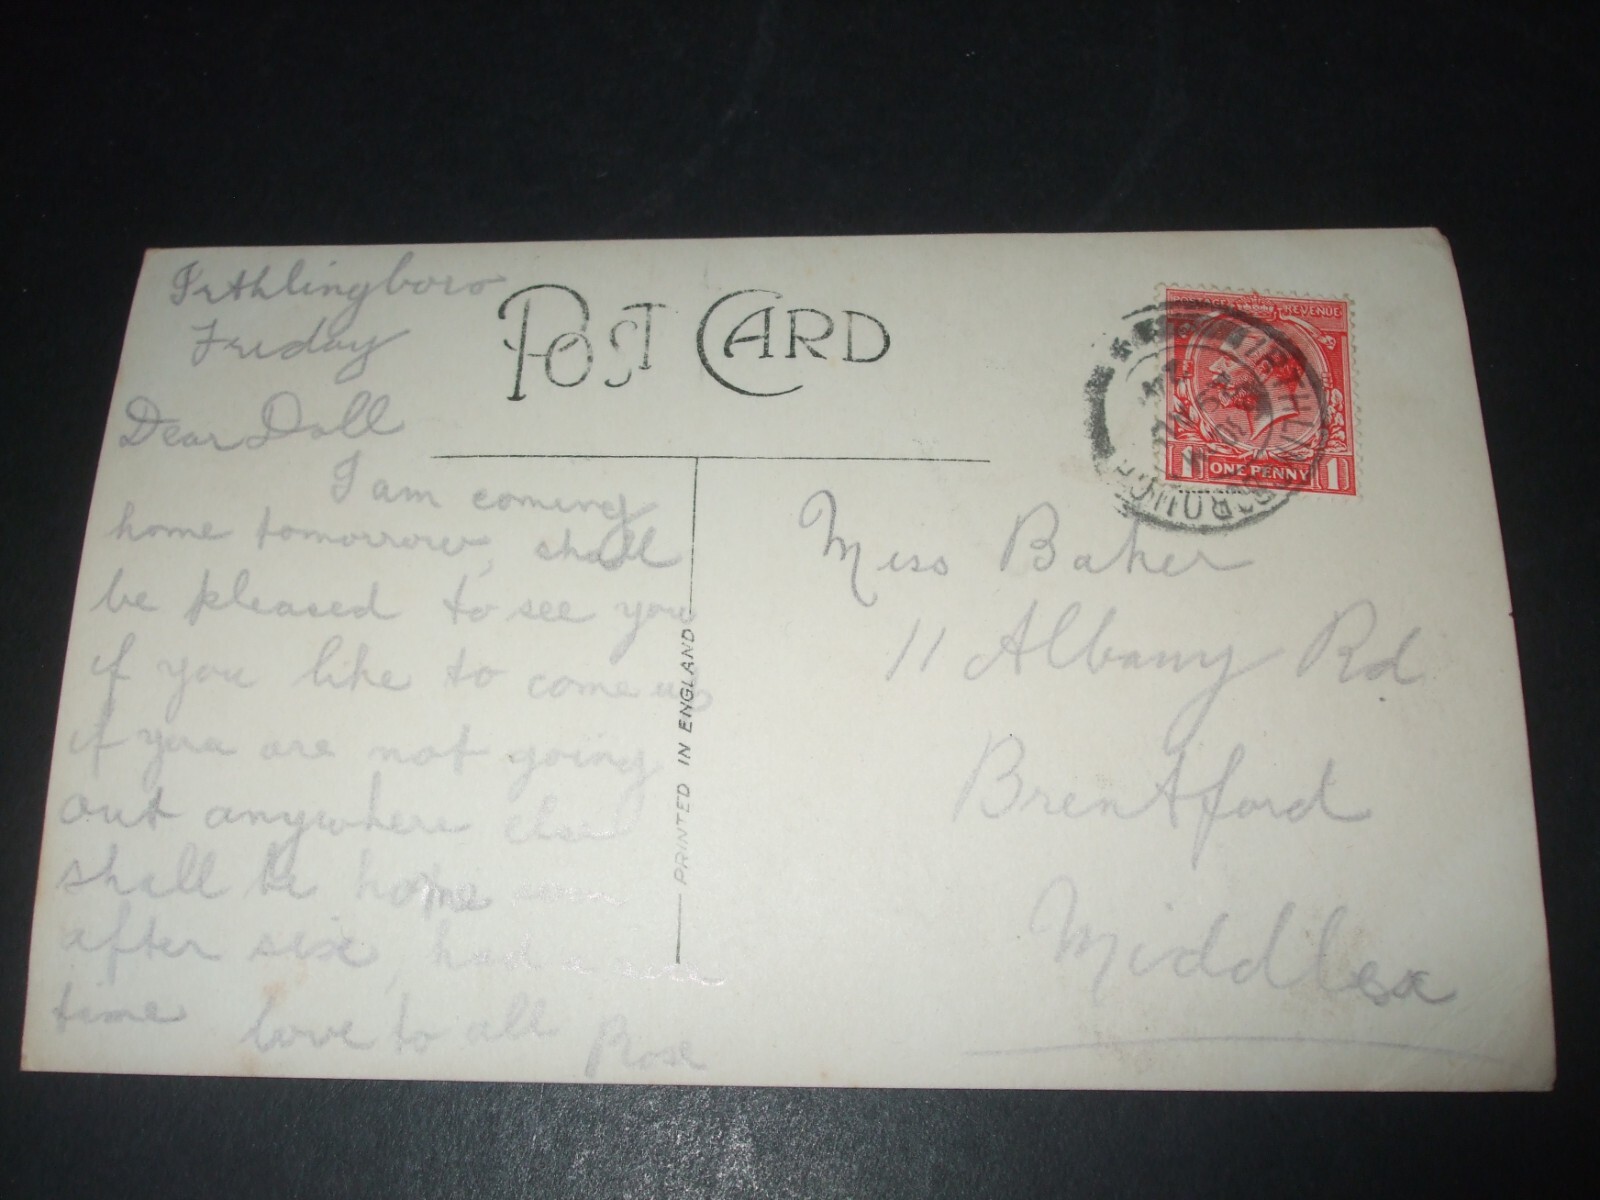 Irthlingboro
Friday
Dear Doll
I am coming
home tomorrow, shall
be pleased to see you
if you like to come up
if you are not going
out anywhere else
shall be home
after six, had a
time
love to all Rose
POST CARD
PRINTED IN ENGLAND
POSTAGE REVENUE
1 ONE PENNY 1
Miss Baker
11 Albany Rd
Brentford
Middlesex